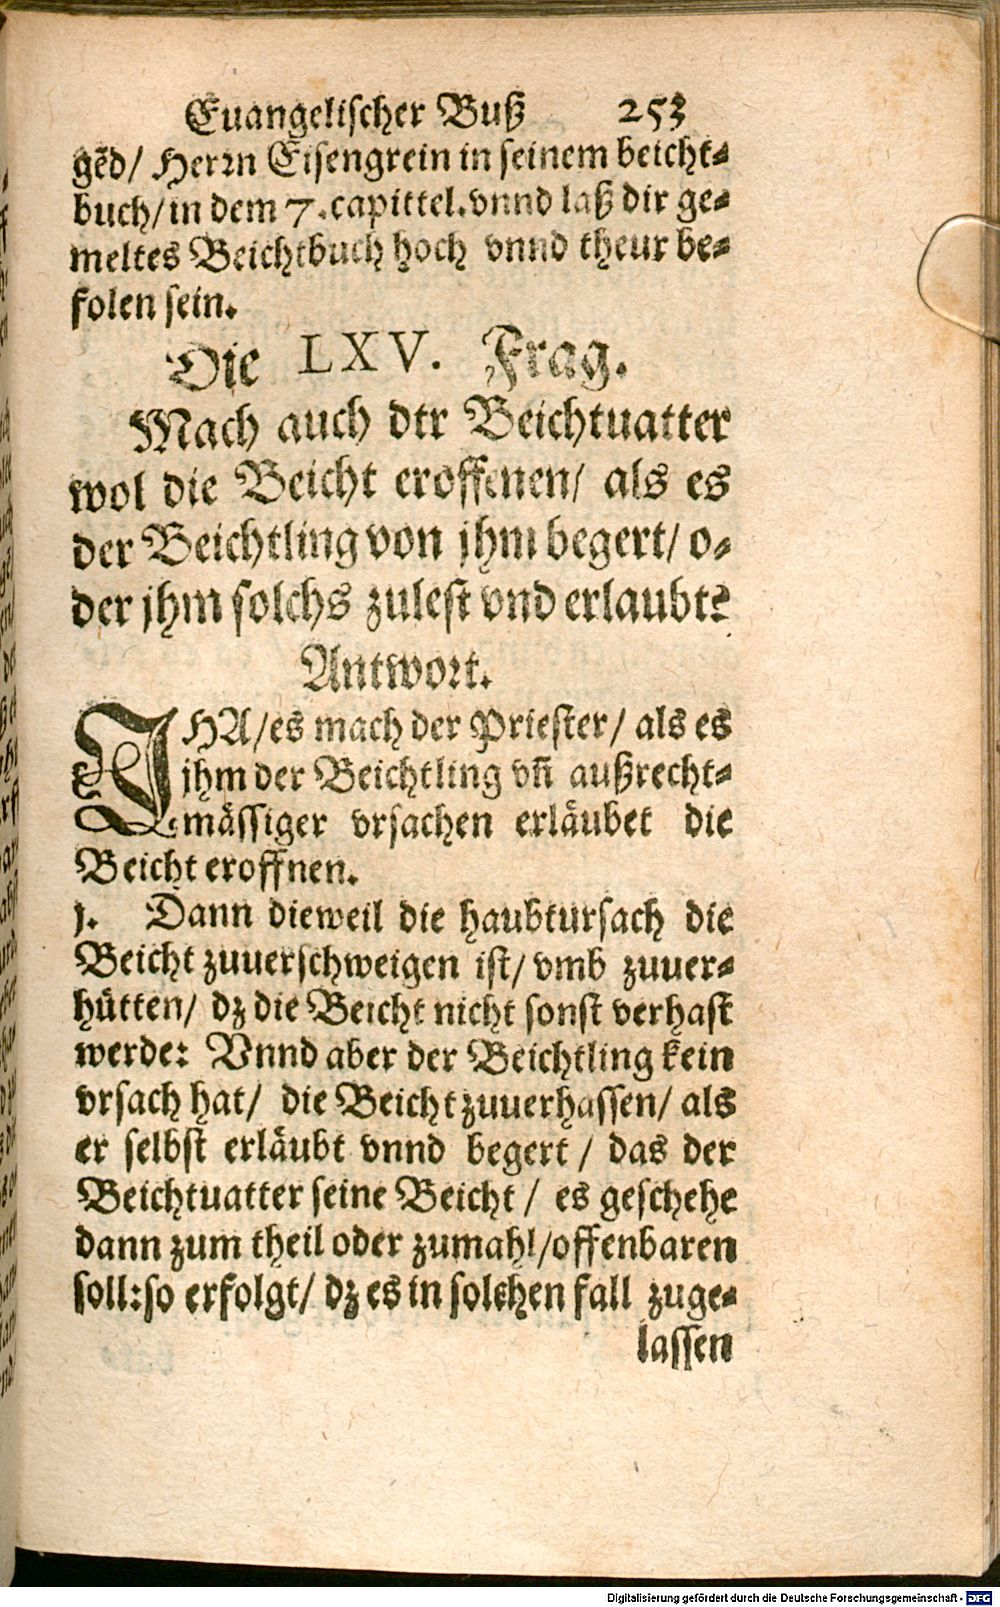 Euangelischer Buß 253
gẽd/ Herrn Eisengrein in seinem beicht-
buch/ in dem 7. capittel. vnnd laß dir ge-
meltes Beichtbuch hoch vnnd theur be-
folen sein.
Die LXV. Frag.
Mach auch dtr Beichtuatter
wol die Beicht eroffenen/ als es
der Beichtling von jhm begert/ o-
der jhm solchs zulest vnd erlaubt?
Antwort.
JHA/ es mach der Priester/ als es
jhm der Beichtling vñ außrecht-
mässiger vrsachen erläubet die
Beicht eroffnen.
j. Dann dieweil die haubtursach die
Beicht zuuerschweigen ist/ vmb zuuer-
hütten/ dz die Beicht nicht sonst verhast
werde: Vnnd aber der Beichtling kein
vrsach hat/ die Beicht zuuerhassen/ als
er selbst erläubt vnnd begert / das der
Beichtuatter seine Beicht / es geschehe
dann zum theil oder zumahl/ offenbaren
soll: so erfolgt/ dz es in solchen fall zuge-
lassen
Digitalisierung gefördert durch die Deutsche Forschungsgemeinschaft - DFG